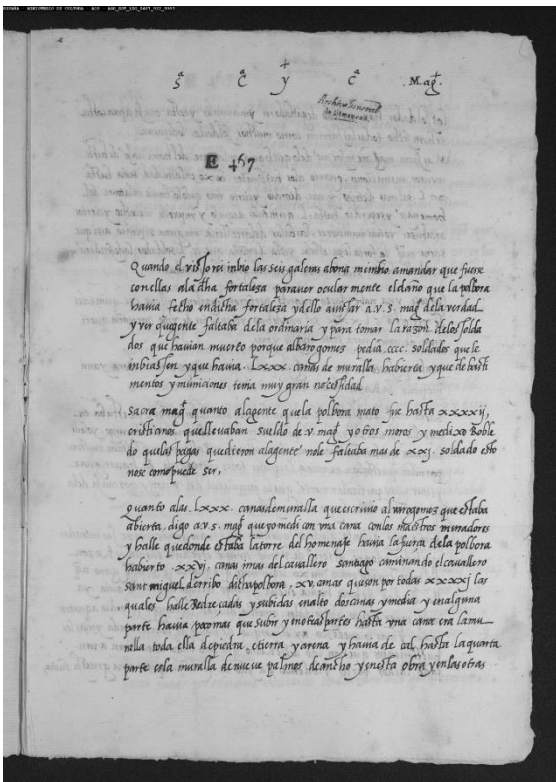 ESPAÑA - MINISTERIO DE CULTURA - AGS
+
S.ª C. y C.ª Mag.t
Archivo General
de Simancas
E 467
Quando el visForei inbio las seis galeras abona menbio amandar que fuese
conellas aladha fortaleza paraver ocular mente eldaño que la polbora
havia fecho endicha fortaleza ydello avisar a.v.s. mag.t dela verdad
yver qugente faltaba dela ordinaria y para tomar la razon delos solda
dos que havian muerto porque albarogomes pedia cccc. soldados quele
inbiassen yque havia .Lxxx. canas de muralla habierta yque de basti
mentos y municiones tenia muy gran necesidad
sacra mag.t quanto alagente quela polbora mato fue hasta xxxxij,
cristianos quellevaban sueldo de.v. mag.t yotros moros y medixo Roble
do quelas pagas quedieron alagente nole faltaba mas de xxj. soldado esto
nose como puede ser,
quanto alas .Lxxx. canas demuralla queescrivio alvarogomez que estaba
abierta, digo a.v.s. mag.t que yo medi con vna cana conlos maestros muradores
y halle quedonde estaba latorre del homenaje havia la fuerça dela polbora
habierto .xxvj. canas imas del cavallero santiago caminando elcavallero
sant miguel derribo dicha polbora .xv, canas queson por todas xxxxj las
quales halle Redreçadas y subidas enalto doscanas y media y enalguna
parte havia pocomas que subir y enotras partes hasta vna cana era lamu
ralla toda ella depiedra etierra yarena y havia de cal hasta la quarta
parte esla muralla denueve palmos deancho yenesta obra yenlas otras